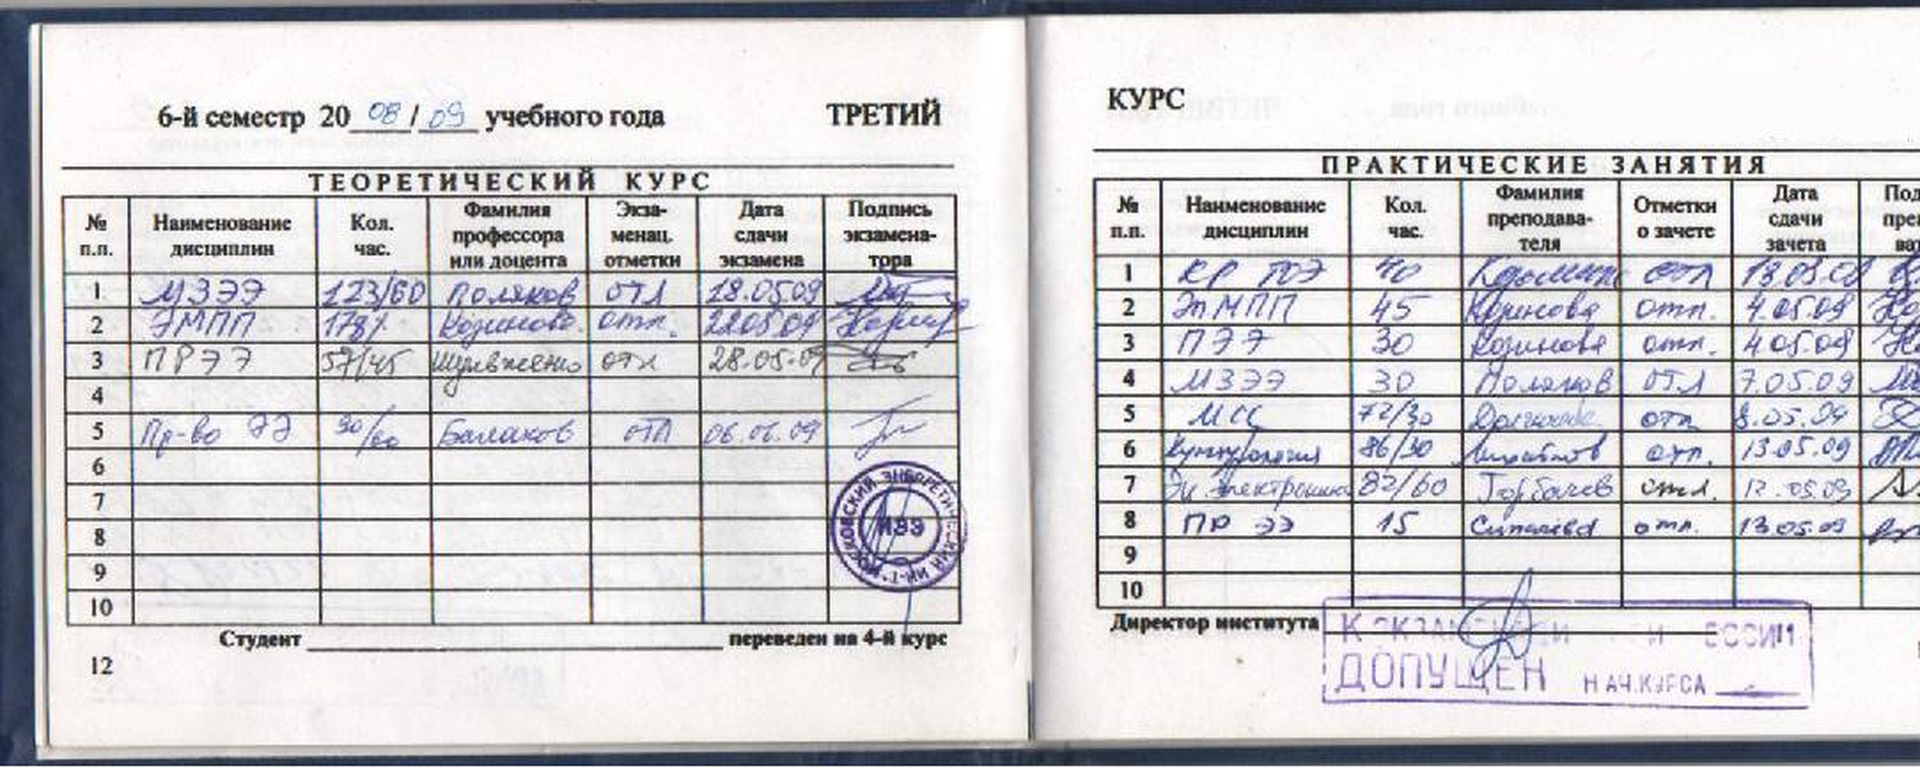 6-й семестр 20 08 / 09 учебного года ТРЕТИЙ
ТЕОРЕТИЧЕСКИЙ КУРС
№ п.п. Наименование дисциплин Кол. час. Фамилия профессора или доцента Экза-менац. отметки Дата сдачи экзамена Подпись экзамена-тора
1 МЗЭЭ 123/60 Поляков отл 18.05.09
2 ЭМПП Кодинова. отл. 22.05.09
3 ПРЭЭ 57/45 отл 28.05.09
4
5 Пр-во ЭЭ 90/60 Балаков отл 06.06.09
6
7
8
9
10
МОСКОВСКИЙ ЭНЕРГЕТИЧЕСКИЙ ИН-Т
ИЭЭ
Студент переведен на 4-й курс
12
КУРС
ПРАКТИЧЕСКИЕ ЗАНЯТИЯ
№ п.п. Наименование дисциплин Кол. час. Фамилия преподава-теля Отметки о зачете Дата сдачи зачета
1 КР ТОЭ 40 отл
2 ЭпМПП 45 Кодинова отл. 4.05.09
3 ПЭЭ 30 Кодинова отл. 4.05.09
4 МЗЭЭ 30 Поляков отл 7.05.09
5 МСС 72/30 отл 8.05.09
6 86/30 отл. 13.05.09
7 электроника 82/60 Горбачев отл. 12.05.09
8 ПР ЭЭ 15 отл. 13.05.09
9
10
Директор института
К ЭКЗАМЕНАЦИОННОЙ СЕССИИ
ДОПУЩЕН НАЧ.КУРСА